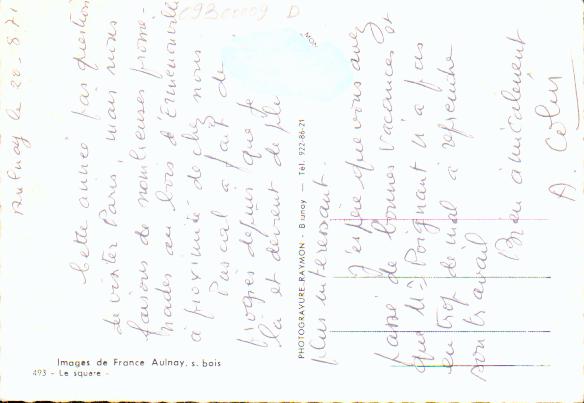 Aulnay le 20-8-71
Cette année pas question
de visiter Paris, mais nous
faisons de nombreuses prome-
nades au bois d'Ermenonville
à proximité de chez nous
Pascal a fait de
progrès depuis que je
l'ai et devient de plus
plus intéressant.
J'espère que vous avez
passé de bonnes vacances et
que Mr Poignant n'a pas
eu trop de mal à reprendre
son travail
Bien amicalement
A.
Images de France Aulnay. s. bois
493 - Le square -
PHOTOGRAVURE RAYMON - Aunay - Tél. 922-86-21
MON
D